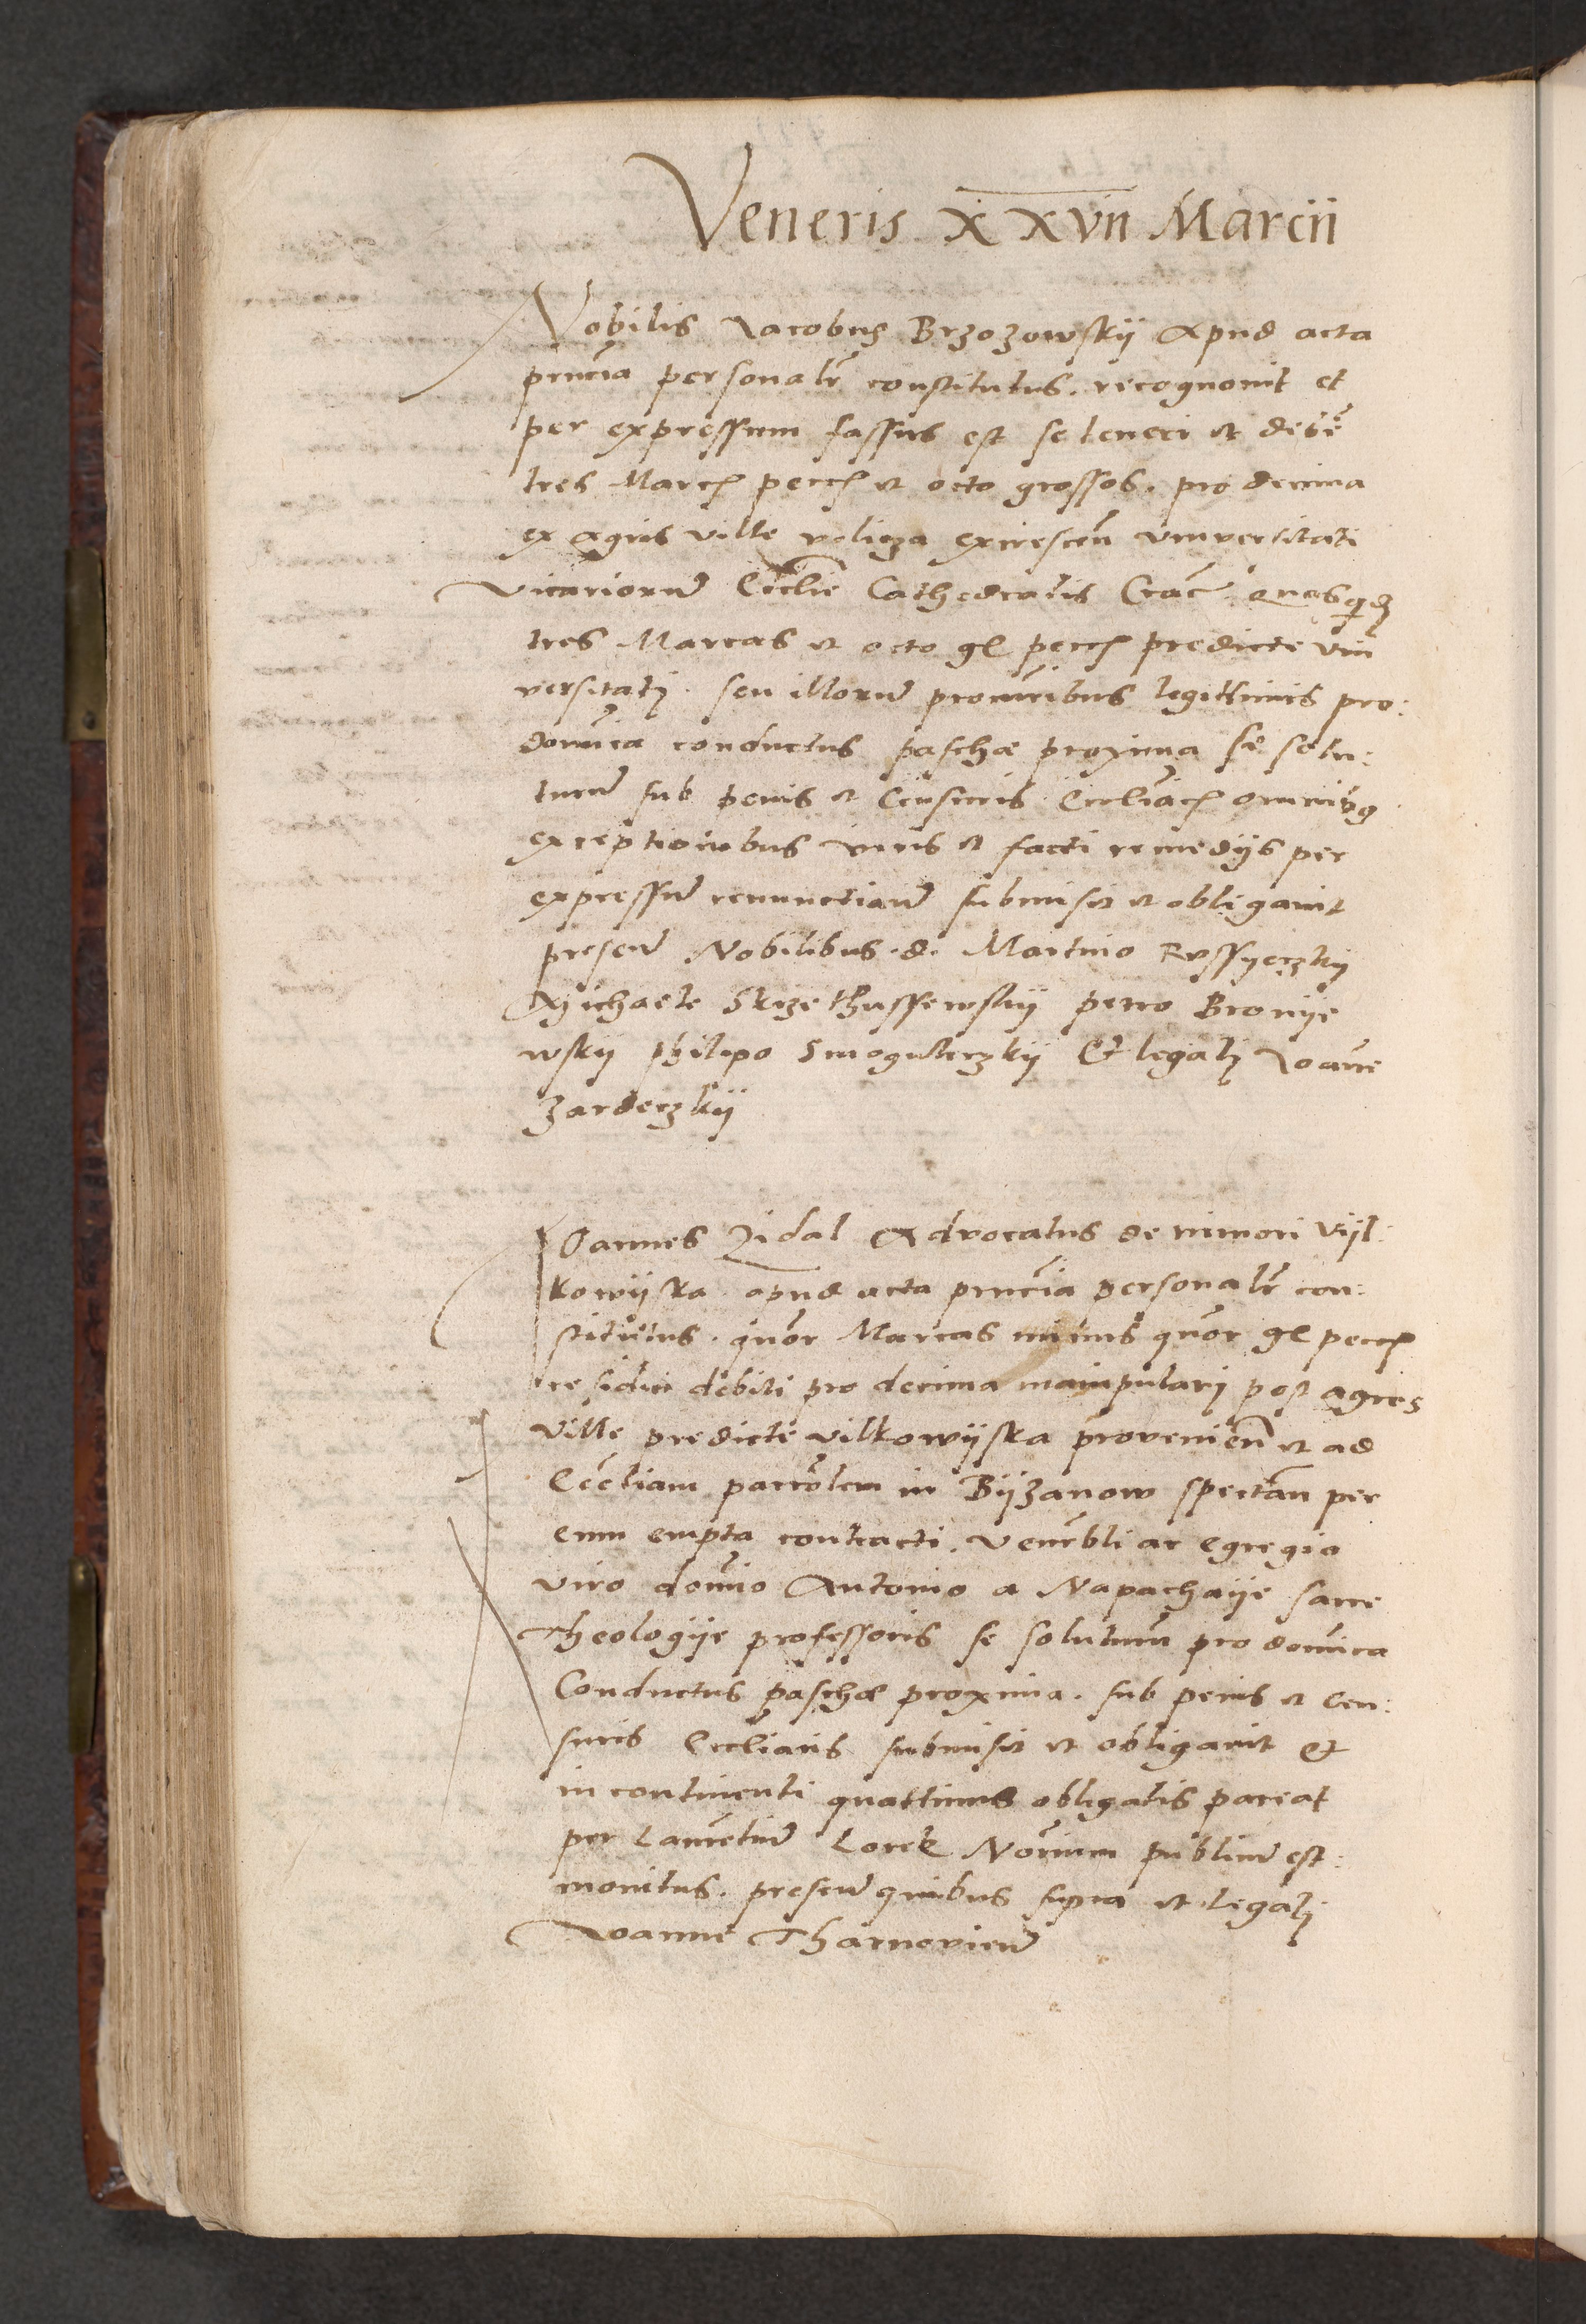 Veneris XXVII Marcii
Nobilis Jacobus Brzozowskij Apud acta
pñtia personalr̃ constitutus. recognovit et
per expressum fassus est se teneri et debẽ
tres Marcȝ peccȝ et octo grossos. pro decima
ex agris ville volicza excrescen̄ universitati
vicariorum Eccl̃ie Cathedralis Crac̃. quasquidȝ
tres Marcas et octo gl peccȝ predicte uni
versitatj. seu illorum procur̃ibus legittimis pro:
domĩca conductus paschæ proxima se solu:
turum sub penis et Censuris Eccl̃iacȝ omnibȝ
exceptionibus iuris et facti remedijs per
expressum renunctiaññ submisit et obligavit
presen̄ Nobilibus. d. Martino Rossyeczky
Michaele Skrzethussewskij petro Bronije
wskij philipo Smoguleczkij Et legalj Joañe
Zardeczkij
Ioannes Zidal Advocatus de minori Vijl:
kowijska. apud acta pñtia personalr̃ con:
stitutus. quõr Marcas minus quõr gl peccȝ
residui debiti pro decima manipularj post agros
ville predicte vilkowijska provenien̄ et ad
Eccl̃iam parrõlem in Bijzanow spectan̄ per
eum empta contracti. Venerabli ac egregio
viro domĩno Antonio a Napachaije sacre
Theologije professoris se soluturum pro domĩca
Conductus paschæ proxima. sub penis et Cen:
suris Eccl̃iacis submisit et obligavit et
in continenti quattinus obligatis pareat
per Laurẽtium Lorek Notarium publicum est:
monitus. presen̄ quibus supra et legalj
Joanne Tharnovien̄